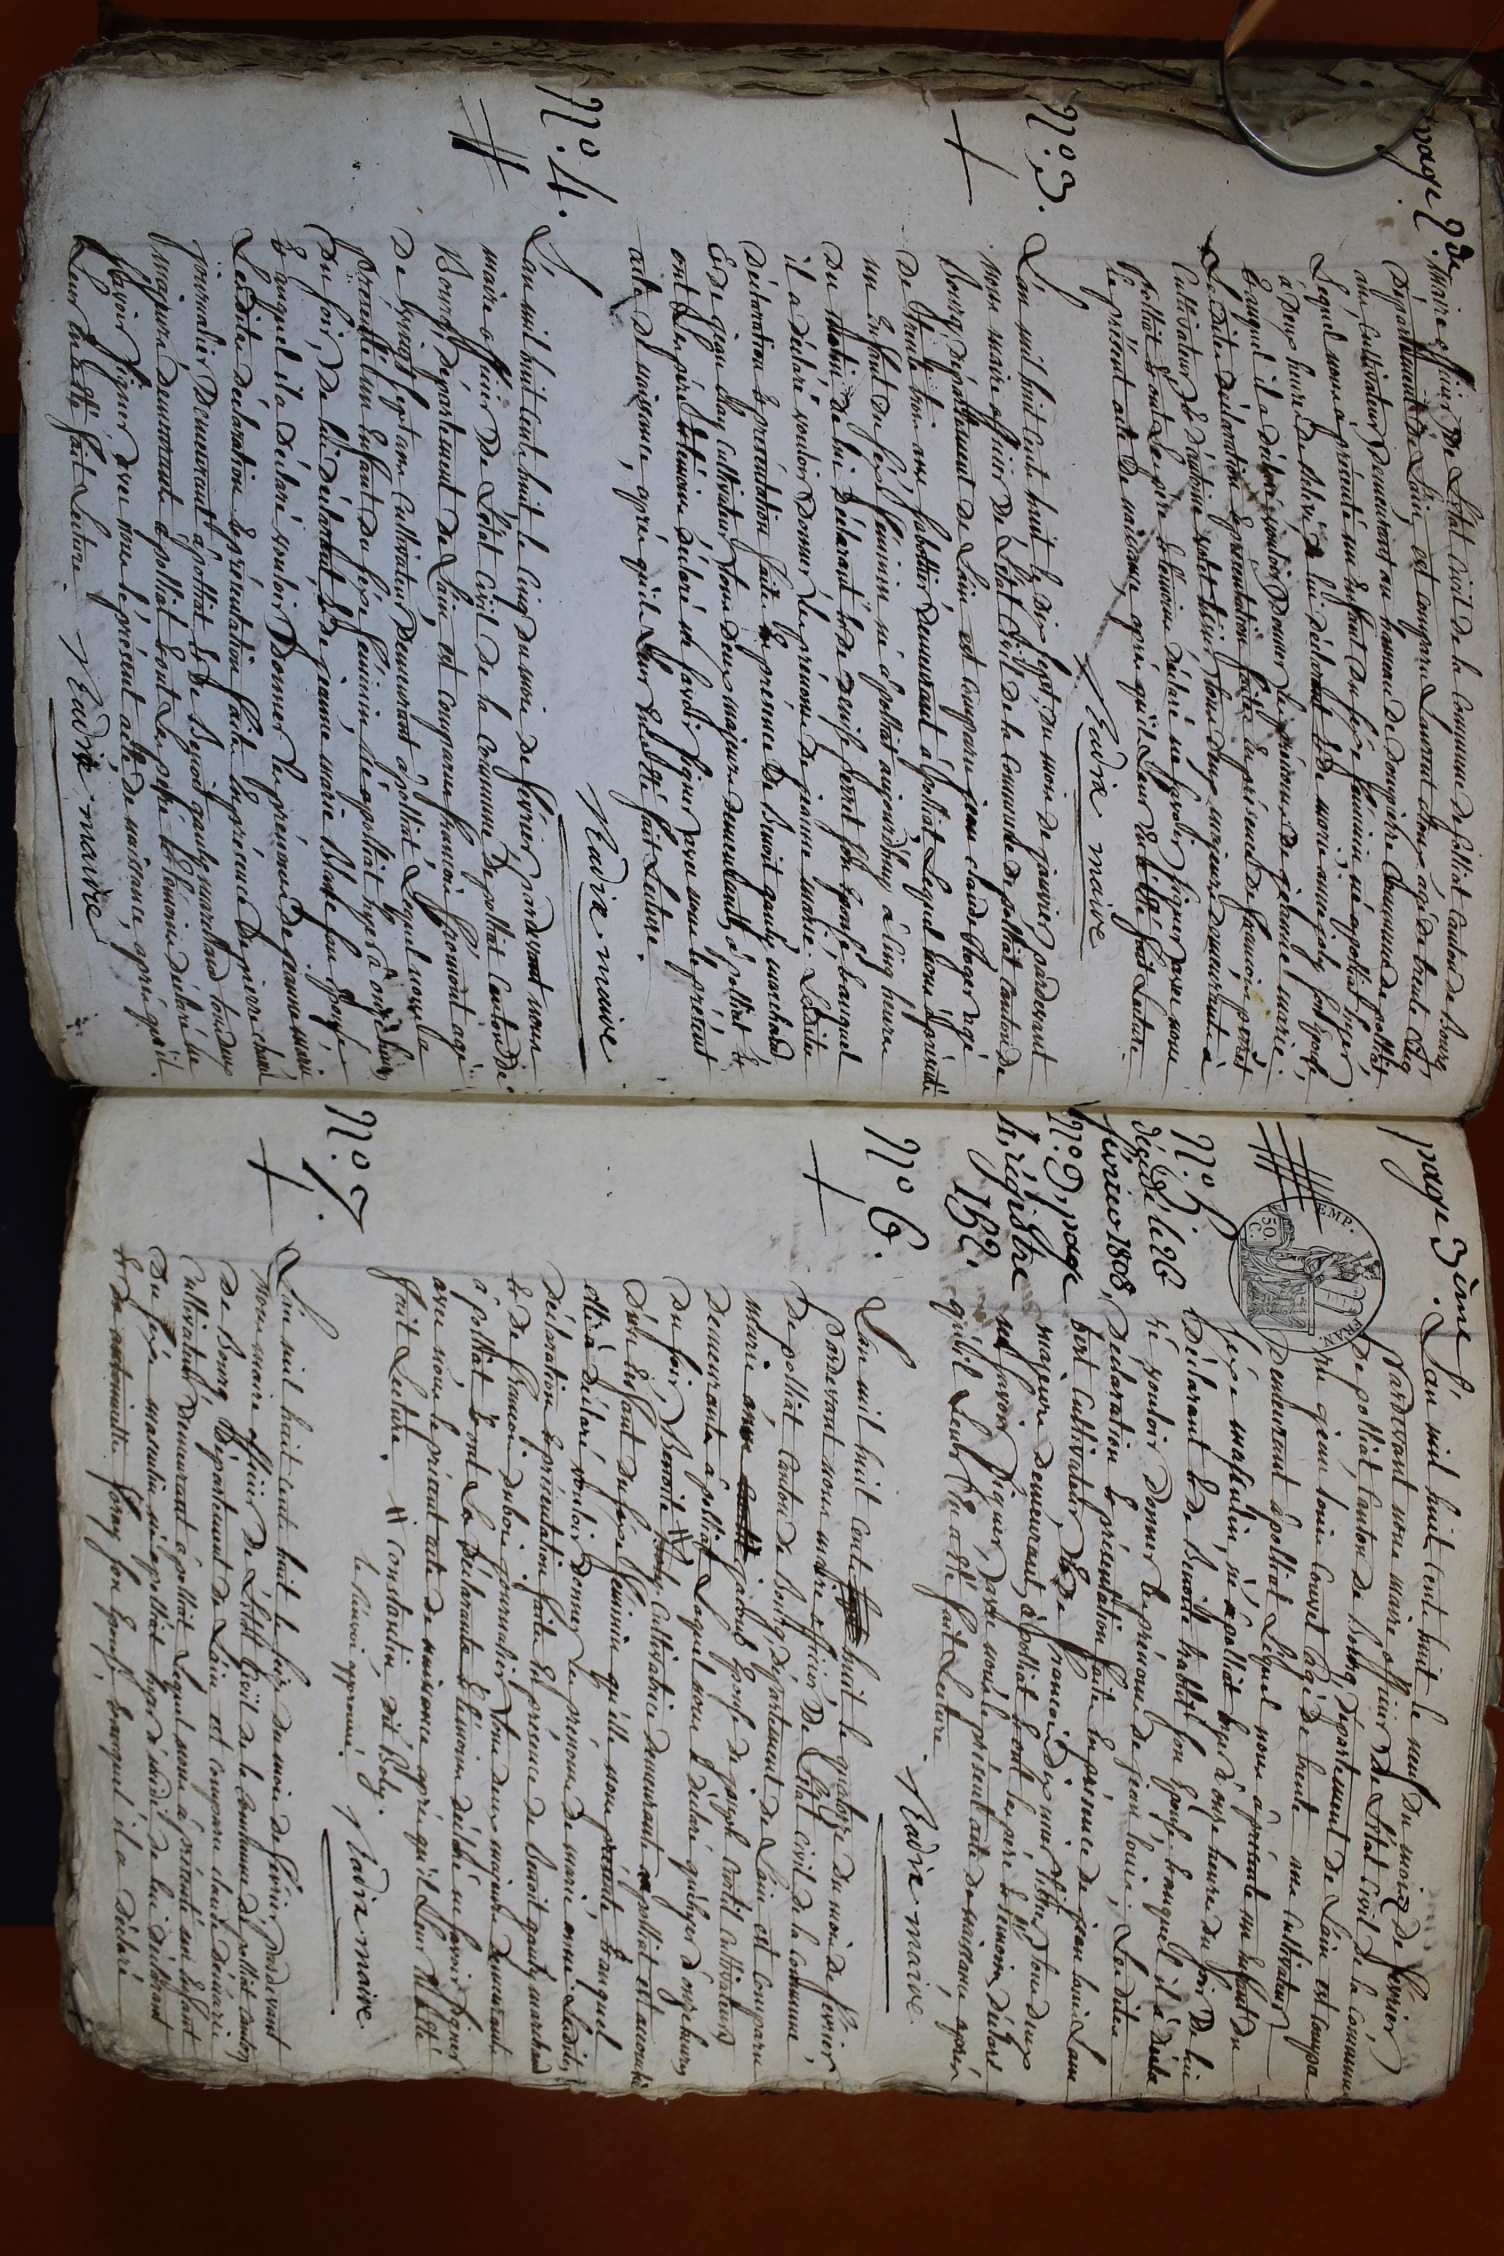 page 2de
maire officier De Létat civil de la commune de polliat canton de Bourg
Département de L'ain, est comparu Laurent
cultivateur Demeurant au hameau de Commune de polliat
Lequel nous a présenté un Enfant du sexe féminin né à polliat hyer
à Deux heure De de lui déclarant & de marie anne joly son Epouse,
& auquel il a déclaré vouloir Donner le prénom de jeanne marie.
Lesdite Déclaration & présentation faite En présence de françois
Cultivateur & D'antoine tous deux majeure demeurant à
polliat & ont Le père & témoins déclaré ne savoir signer avec nous
Le présent acte De naissance, après qu'il Leur En a été fait Lecture.
maire
N.° 3.
L'an mil huit Cent huit le dix sept du mois de janvier, pardevant
nous maire officier De L'état Civil de la Commune de polliat canton de
Bourg, Département de L'ain est comparu jean claude Roger agé
De trente trois ans sabottier demeurant à polliat Lequel nous a présenté
un Enfant du sexe féminin né à polliat aujourd'huy à Cinq heures
Du matin de lui Déclarant & de denise ferrat son Epouse, & auquel
il a déclaré vouloir Donner Le prénom de jeanne marie. Lesdite
Déclaration & présentation faite En présence De Benoit gauly marchand
& De jean Cultivateur tous deux majeurs demeurants à polliat &
ont Le père & témoins déclaré ne savoir signer avec nous le présent
acte De naissance, après qu'il Leur En a été fait Lecture.
maire
N.° 4.
L'an mil huit Cent huit le Cinq du mois de février pardevant nous
maire officier De L'état Civil de la Commune De polliat Canton De
Bourg, Département De L'ain est comparu françois froment agé
De vingt sept ans Cultivateur, Demeurant à polliat Lequel nous a
présenté un Enfant du sexe féminin né à polliat hyer à onze heure
Du soir, De lui Déclarant & De jeanne marie son Epouse
& auquel il a Déclaré vouloir Donner le prénom De jeanne marie
Lesdite Déclaration & présentation faite En présence De pierre
journalier Demeurant à polliat & De Benoit gauly marchand tous deux
majeure demeurant à polliat & ont Le père & témoins déclaré ne
savoir signer avec nous le présent acte de naissance, après qu'il
Leur En a été fait Lecture.
maire
page 3ème.
EMP. FRAN.
50. C.
N.° 5
décédé le 26
février 1808,
N.° 9, page
4, régistre
152.
L'an mil huit Cent huit le neuf Du mois De février
pardevant nous maire officier De L'état Civil de la Commune
De polliat Canton de Bourg, Département de L'ain est Compa-
ru jean louis Convert agé De trente ans Cultivateur
Demeurant à polliat Lequel nous a présenté un Enfant du
sexe masculin, né à polliat hyer à onze heure du soir De lui
Déclarant & De Benoite son Epouse & auquel il a Décla-
ré vouloir donner le prénom de jean louis, Lesdites
Déclaration & présentation faite En présence de jean louis Lam
bert Cultivateur, & De françois tous deux
majeure demeurant à polliat & ont le père & témoins Déclaré
ne savoir signer, avec nous le présent acte de naissance après
qu'il Leur En a été fait Lecture.
maire
N.° 6.
L'an mil huit cent huit le quatorze du mois de février
Pardevant nous maire officier De L'état civil de la Commune
De polliat Canton de Bourg, département de L'ain est comparu
marie jacoud Epouse de joseph Cultivateur
Demeurante à polliat Laquel nous a déclaré qu'hyer à onze heure
Du soir, Benoite # Cultivatrice demeurant à polliat est accouchée
D'un Enfant du sexe féminin qu'elle nous présente & auquel
elle a Déclaré vouloir Donner Le prénom De marie anne. Lesdites
Déclaration & présentation faite En présence de Benoit gauly marchand
& De françois dubois journalier tous deux majeure demeurants
à polliat & ont La Déclarante & témoins déclaré ne savoir signer
avec nous le présent acte de naissance après qu'il Leur En a été
fait Lecture. # Constantin dit Boly.
le renvoi approuvé.
maire.
N.° 7.
L'an mil huit cent huit le seize du mois de février pardevant
nous maire officier De L'état Civil de la Commune de polliat canton
De Bourg, Département de L'ain est comparu claude
Cultivateur Demeurant à polliat Lequel nous a présenté un Enfant
Du sexe masculin né à polliat hyer à midi de lui déclarant
& De son Epouse, & auquel il a déclaré